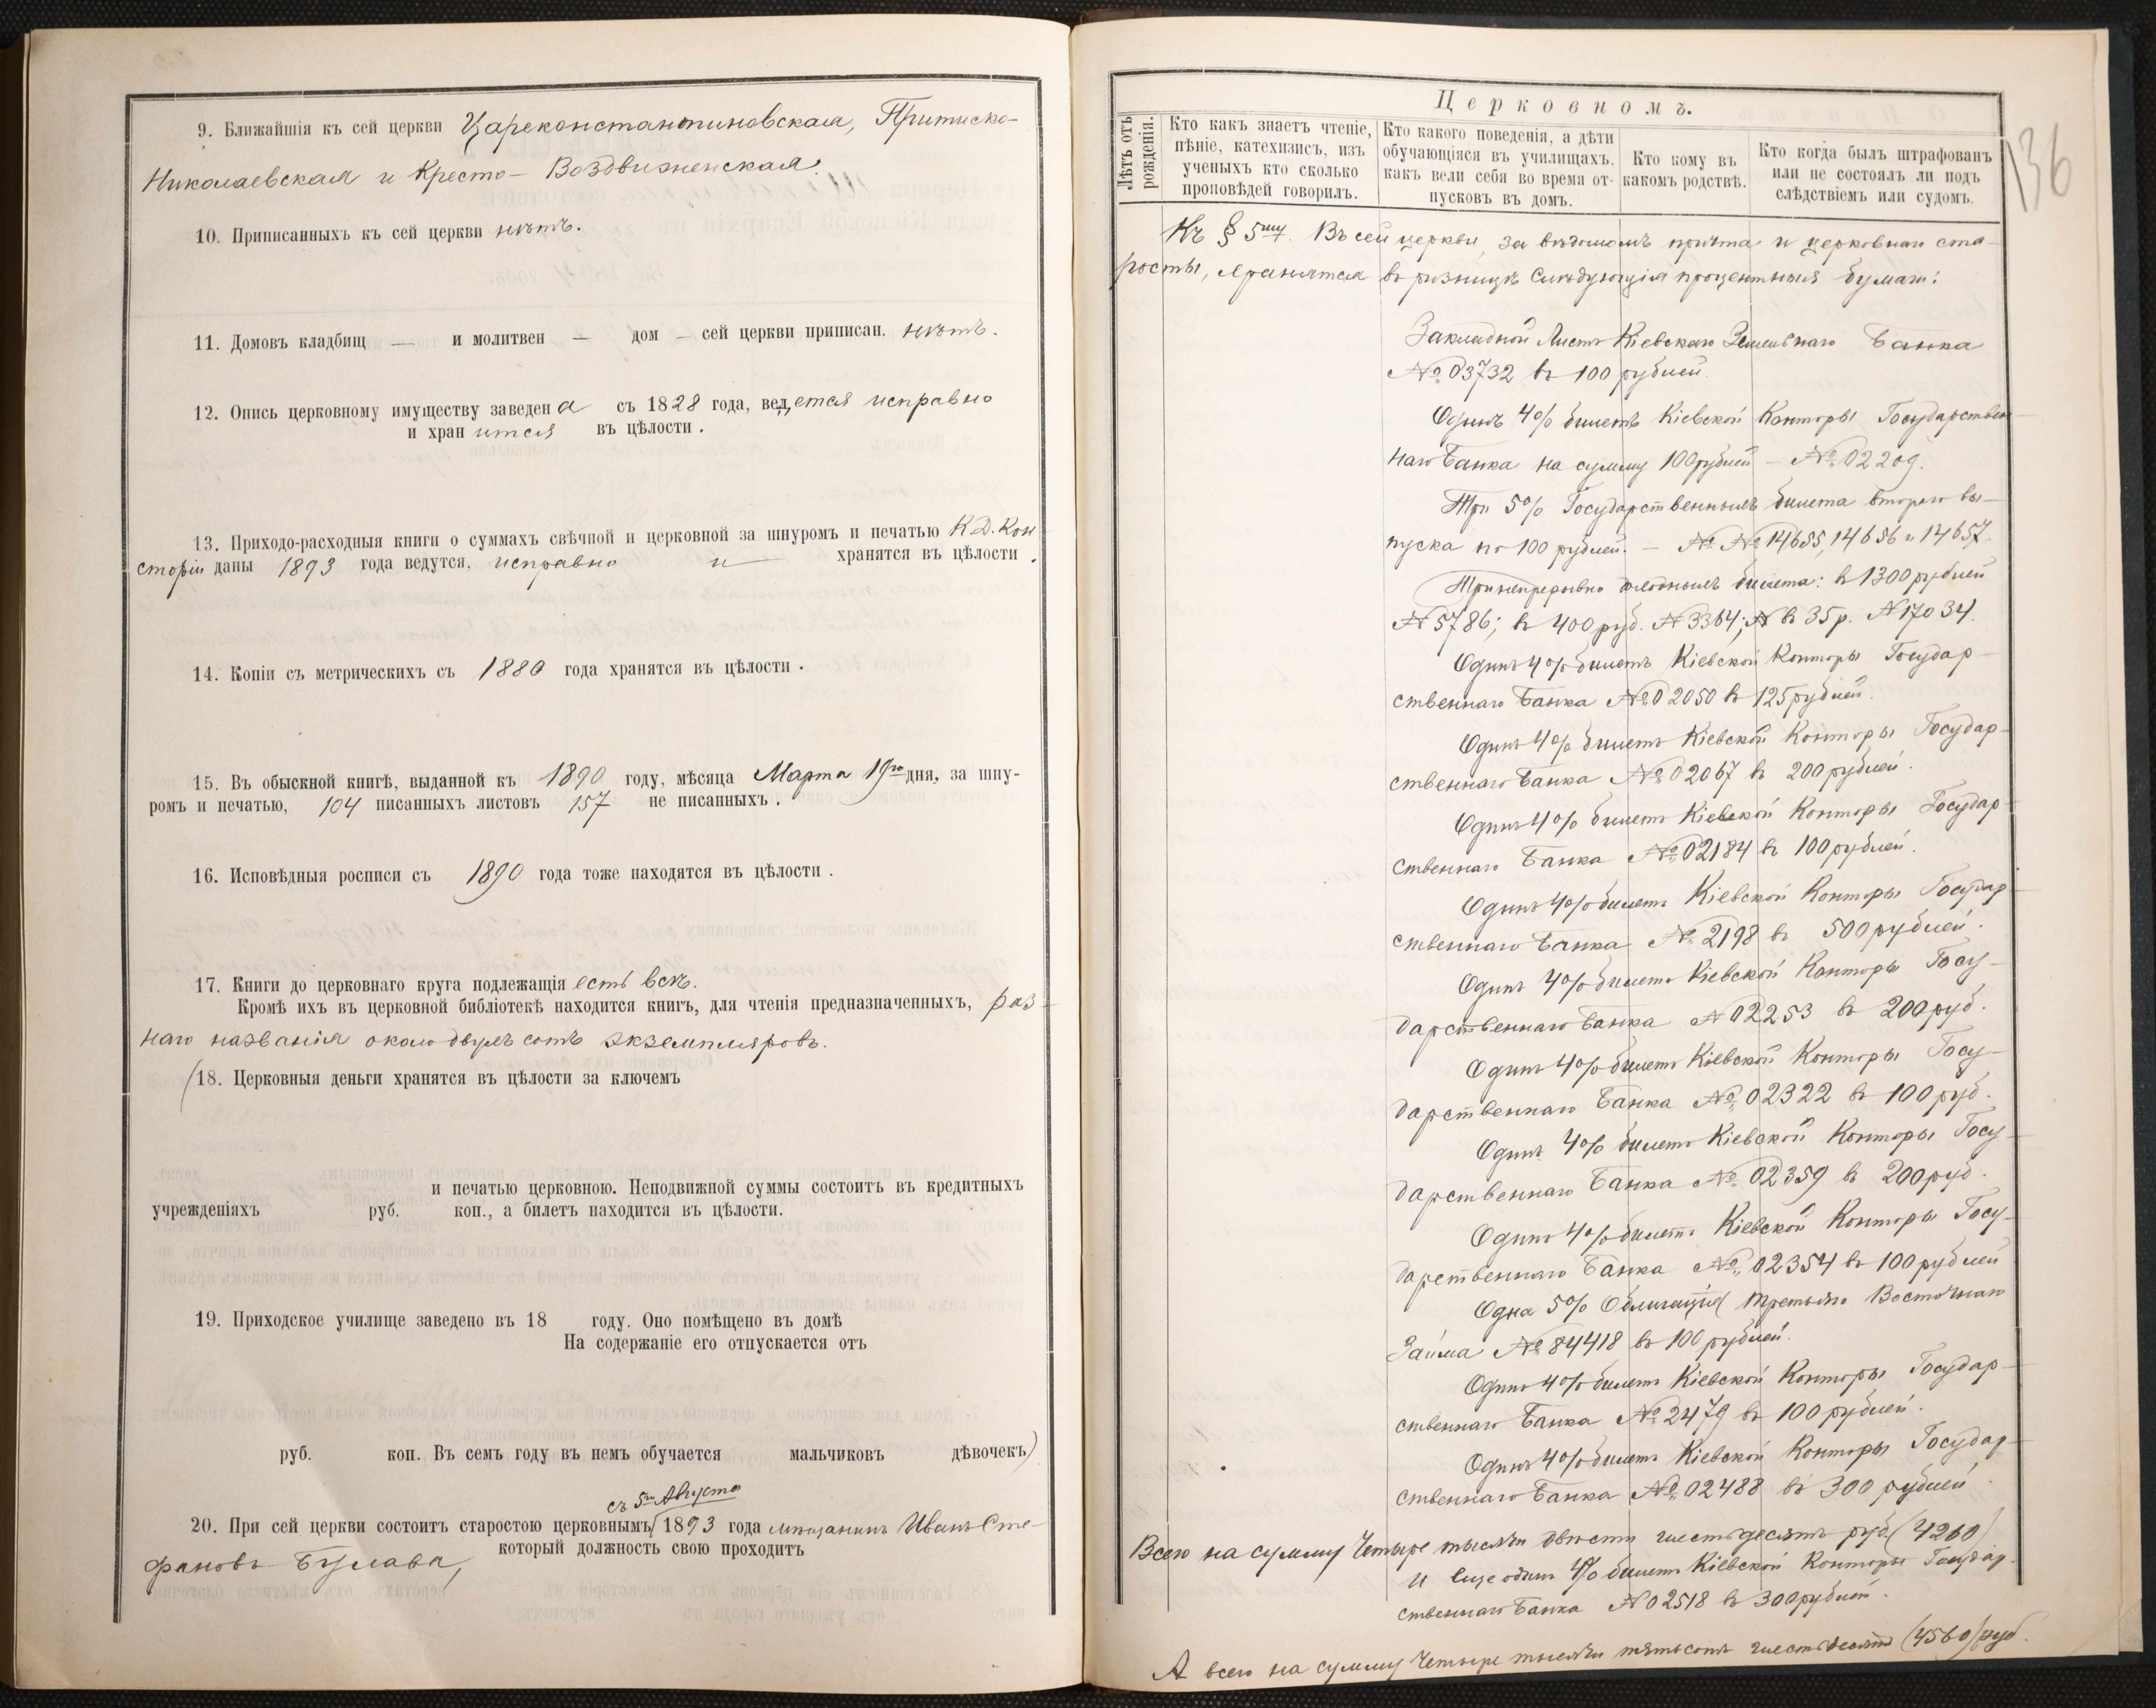 9. Ближайшія къ сей церкви Цареконстантиновская, Притиско-
Николаевская и Кресто-Воздвиженская.
10. Приписанныхъ къ сей церкви нѣтъ.
11. Домовъ кладбищ — и молитвен — дом — сей церкви приписан. нѣтъ.
12. Опись церковному имуществу заведена съ 1828 года, ведется исправно
и хранится въ цѣлости.
13. Приходо-расходныя книги о суммахъ свѣчной и церковной за шнуромъ и печатью К.Д.Кон
сторіи даны 1893 года ведутся, исправно и — хранятся въ цѣлости.
14. Копіи съ метрическихъ съ 1880 года хранятся въ цѣлости.
15. Въ обыскной книгѣ, выданной къ 1890 году, мѣсяца Марта 19го дня, за шну-
ромъ и печатью, 104 писанныхъ листовъ 157 не писанныхъ.
16. Исповѣдныя росписи съ 1890 года тоже находятся въ цѣлости.
17. Книги до церковнаго круга подлежащія есть всѣ.
Кромѣ ихъ въ церковной библіотекѣ находится книгъ, для чтенія предназначенныхъ, раз-
наго названія около двухъ сотъ экземпляровъ.
(18. Церковныя деньги хранятся въ цѣлости за ключемъ
и печатью церковною. Неподвижной суммы состоитъ въ кредитныхъ
учрежденіяхъ руб. коп., а билетъ находится въ цѣлости.
19. Приходское училище заведено въ 18 году. Оно помѣщено въ домѣ
На содержаніе его отпускается отъ
руб. коп. Въ семъ году въ немъ обучается мальчиковъ дѣвочекъ)
съ 5го Августа
20. При сей церкви состоитъ старостою церковнымъ 1893 года мѣщанинъ Иванъ Сте-
фановъ Булава,
который должность свою проходитъ
Церковномъ.
136
Лѣтъ отъ рожденія.
Кто какъ знаетъ чтеніе, пѣніе, катехизисъ, изъ ученыхъ кто сколько проповѣдей говорилъ.
Кто какого поведенія, а дѣти обучающіяся въ училищахъ, какъ вели себя во время отпусковъ въ домъ.
Кто кому въ какомъ родствѣ.
Кто когда былъ штрафованъ или не состоялъ ли подъ слѣдствіемъ или судомъ.
Къ § 5му. Въ сей церкви, за вѣдомомъ причта и церковнаго ста-
росты, хранятся въ ризницѣ слѣдующія процентныя бумаги:
Закладной Листъ Кіевскаго Земельнаго Банка
№ 03732 въ 100 рублей.
Одинъ 4% билетъ Кіевской Конторы Государствен-
наго Банка на сумму 100 рублей — № 02209.
Три 5% Государственныхъ билета втораго вы-
пуска по 100 рублей. — №№ 14655, 14656 и 14657.
Три непрерывно доходныхъ билета: въ 1300 рублей
№ 5786; въ 400 руб. № 3364; въ 35 р. № 17034.
Одинъ 4% билетъ Кіевской Конторы Государ-
ственнаго Банка № 02050 въ 125 рублей.
Одинъ 4% билетъ Кіевской Конторы Государ-
ственнаго Банка № 02067 въ 200 рублей.
Одинъ 4% билетъ Кіевской Конторы Государ-
ственнаго Банка № 02184 въ 100 рублей.
Одинъ 4% билетъ Кіевской Конторы Государ-
ственнаго Банка № 2198 въ 500 рублей.
Одинъ 4% билетъ Кіевской Конторы Госу-
дарственнаго Банка № 02253 въ 200 руб.
Одинъ 4% билетъ Кіевской Конторы Госу-
дарственнаго Банка № 02322 въ 100 руб.
Одинъ 4% билетъ Кіевской Конторы Госу-
дарственнаго Банка № 02359 въ 200 руб.
Одинъ 4% билетъ Кіевской Конторы Госу-
дарственнаго Банка № 02354 въ 100 рублей
Одна 5% Облигація третьяго Восточнаго
Займа № 84418 въ 100 рублей.
Одинъ 4% билетъ Кіевской Конторы Государ-
ственнаго Банка № 2479 въ 100 рублей.
Одинъ 4% билетъ Кіевской Конторы Государ-
ственнаго Банка № 02488 въ 300 рублей
Всего на сумму Четыре тысячи двѣсти шестьдесятъ руб. (4260)
и еще одинъ 4% билетъ Кіевской Конторы Государ-
ственнаго Банка № 02518 въ 300 рублей.
А всего на сумму Четыре тысячи пятьсотъ шестьдесятъ (4560) руб.